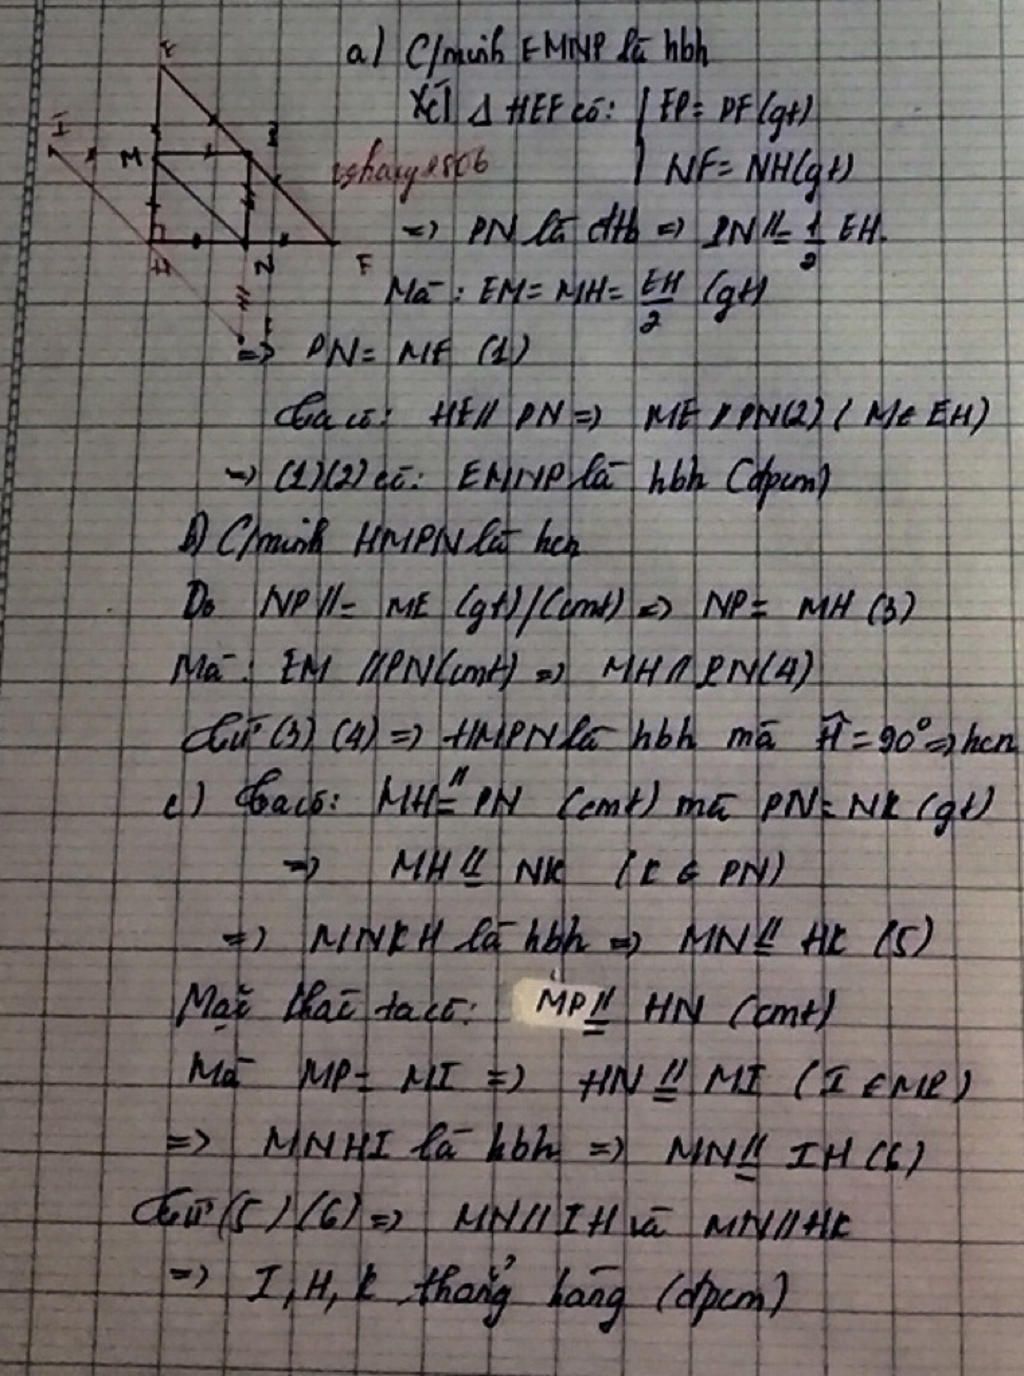 a) C/minh EMNP là hbh
Xét Δ HEF có: | EP = PF (gt)
| NF = NH (gt)
=> PN là đtb => PN //= 1/2 EH.
Mà : EM = MH = EH/2 (gt)
=> PN = ME (1)
Ta có: HE // PN => ME // PN (2) ( M ∈ EH)
=> (1)(2) có: EMNP là hbh (đpcm)
b) C/minh HMPN là hcn
Do NP //= ME (gt)/(cmt) => NP = MH (3)
Mà : EM // PN (cmt) => MH // PN (4)
Từ (3) (4) => HMPN là hbh mà Ĥ = 90° => hcn
c) Ta có: MH //= PN (cmt) mà PN = NK (gt)
=> MH //= NK (K ∈ PN)
=> MNKH là hbh => MN //= HK (5)
Mặt khác ta có: MP //= HN (cmt)
Mà MP = MI => HN //= MI (I ∈ MP)
=> MNHI là hbh => MN //= IH (6)
Từ (5) (6) => MN // IH và MN // HK
=> I, H, K thẳng hàng (đpcm)
E
I
M
H
N
F